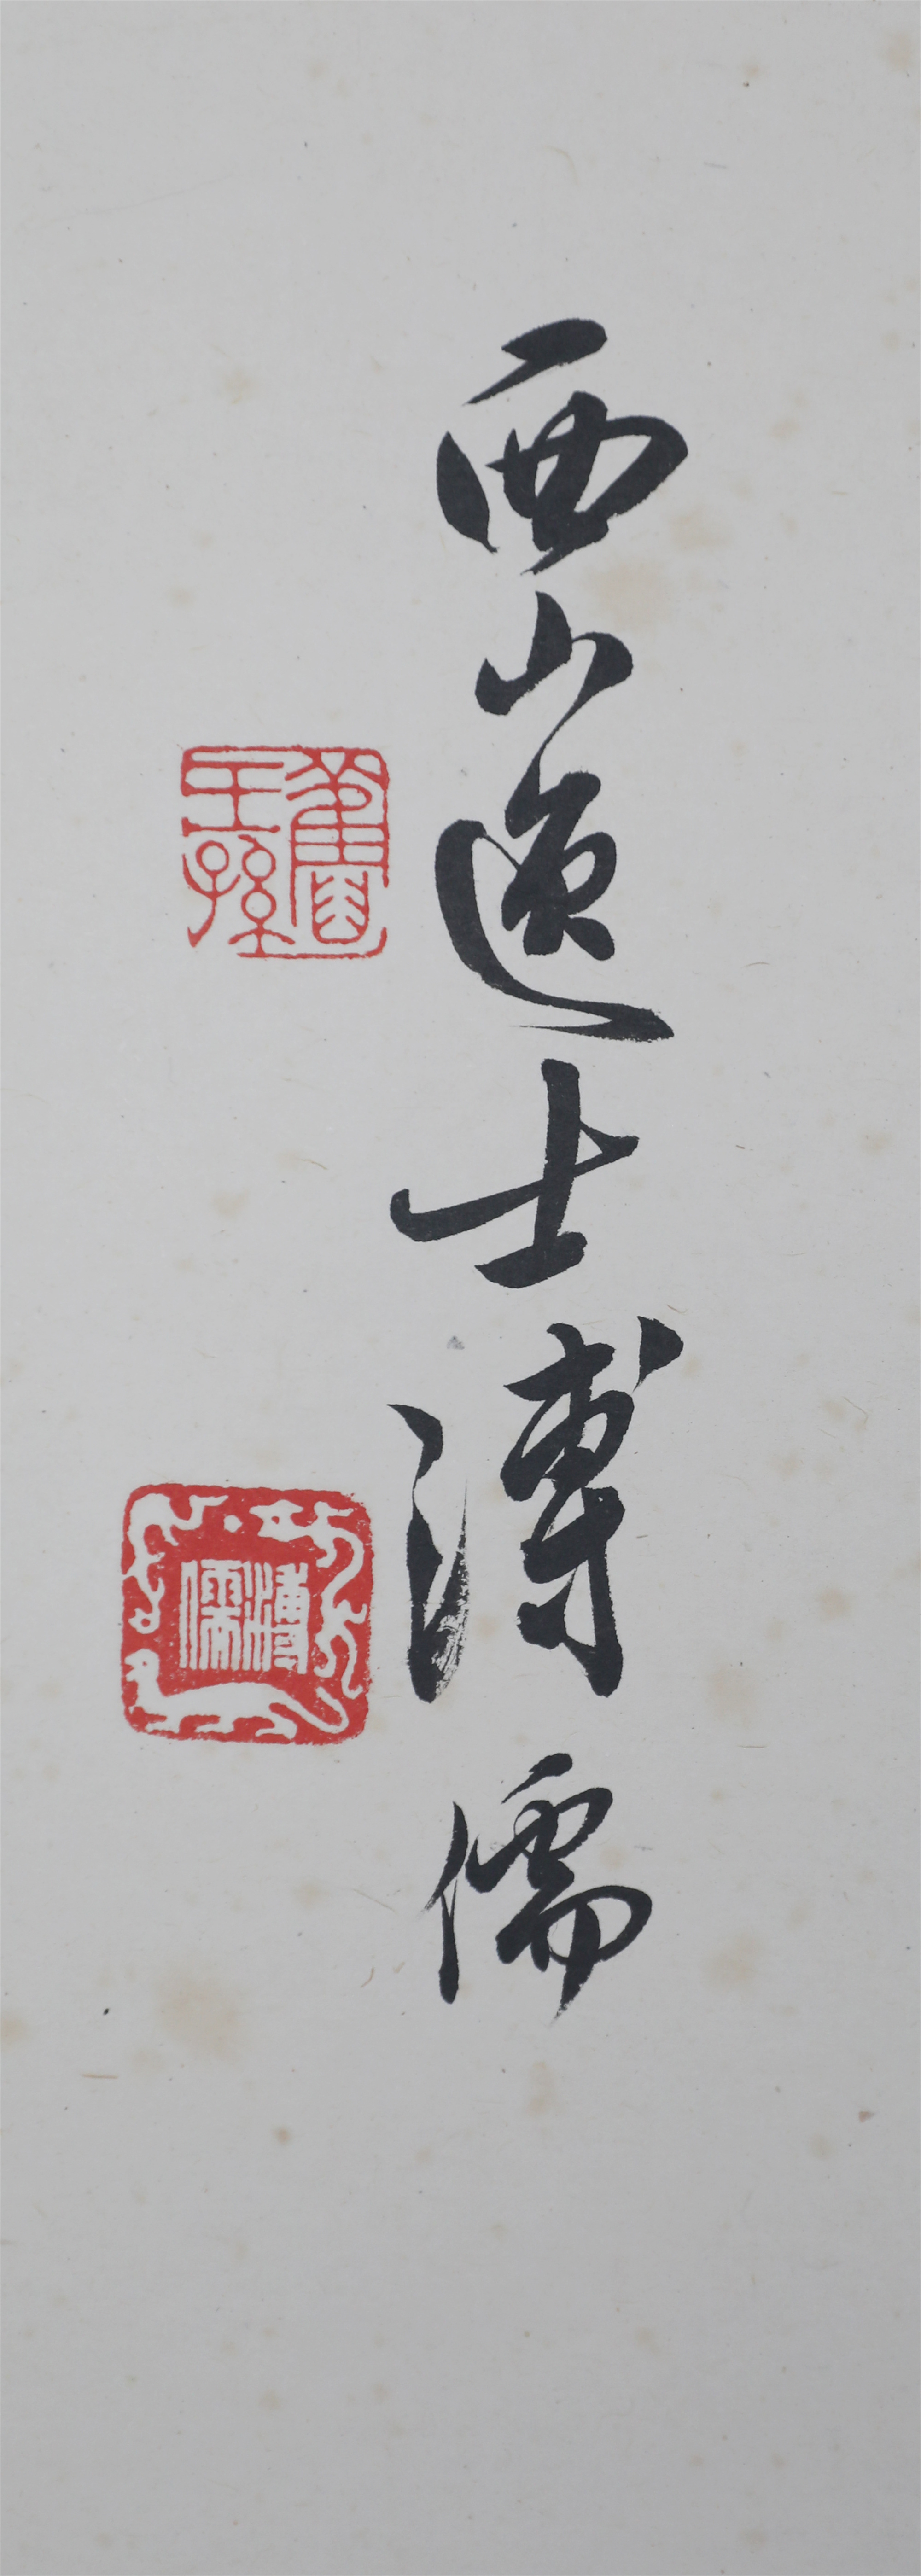 西山逸士溥儒
舊王孫
溥儒